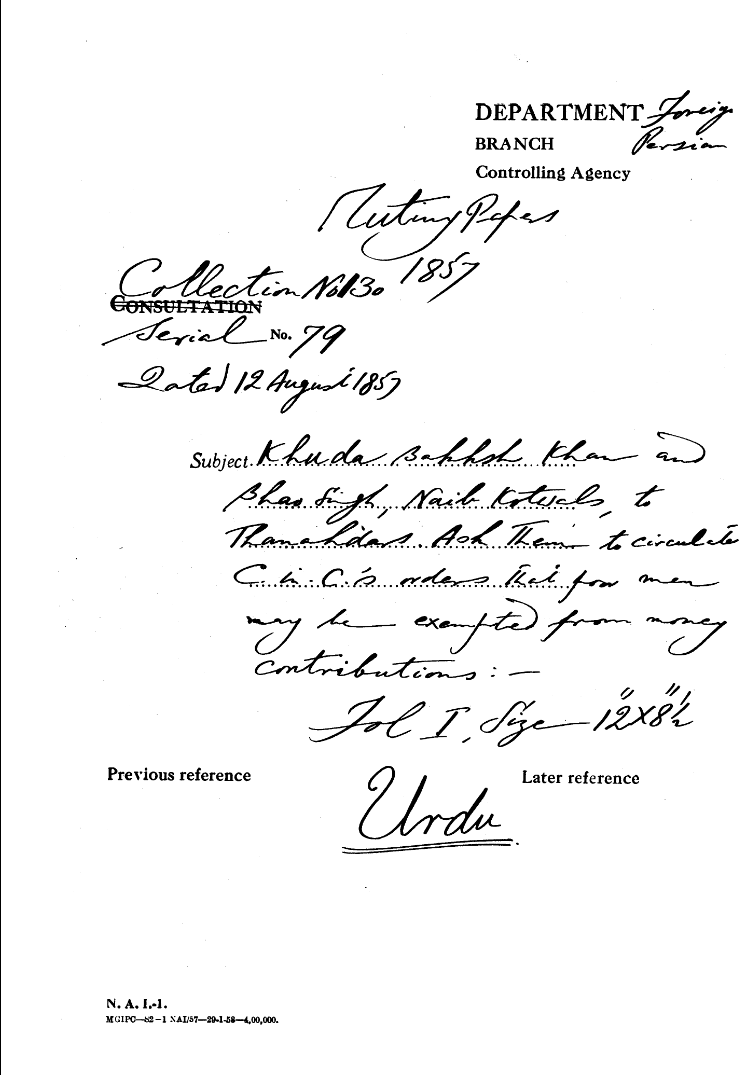 DEPARTMENT Foreign
BRANCH Persian
Controlling Agency
Mutiny Papers
1857
Collection No 130
CONSULTATION
Serial No. 79
Dated 12 August 1857
Subject. Khuda Bakhsh Khan and
Bhao Singh, Naib Kotwals, to
Thanahdars. Ask Them to circulate
C. in. C.'s orders that poor men
may be exempted from money
contributions : —
Fol I, Size 12"X8"½
Previous reference
Later reference
Urdu
N. A. I.-1.
MGIPC—82—1 NAI/57—29-1-58—4,00,000.